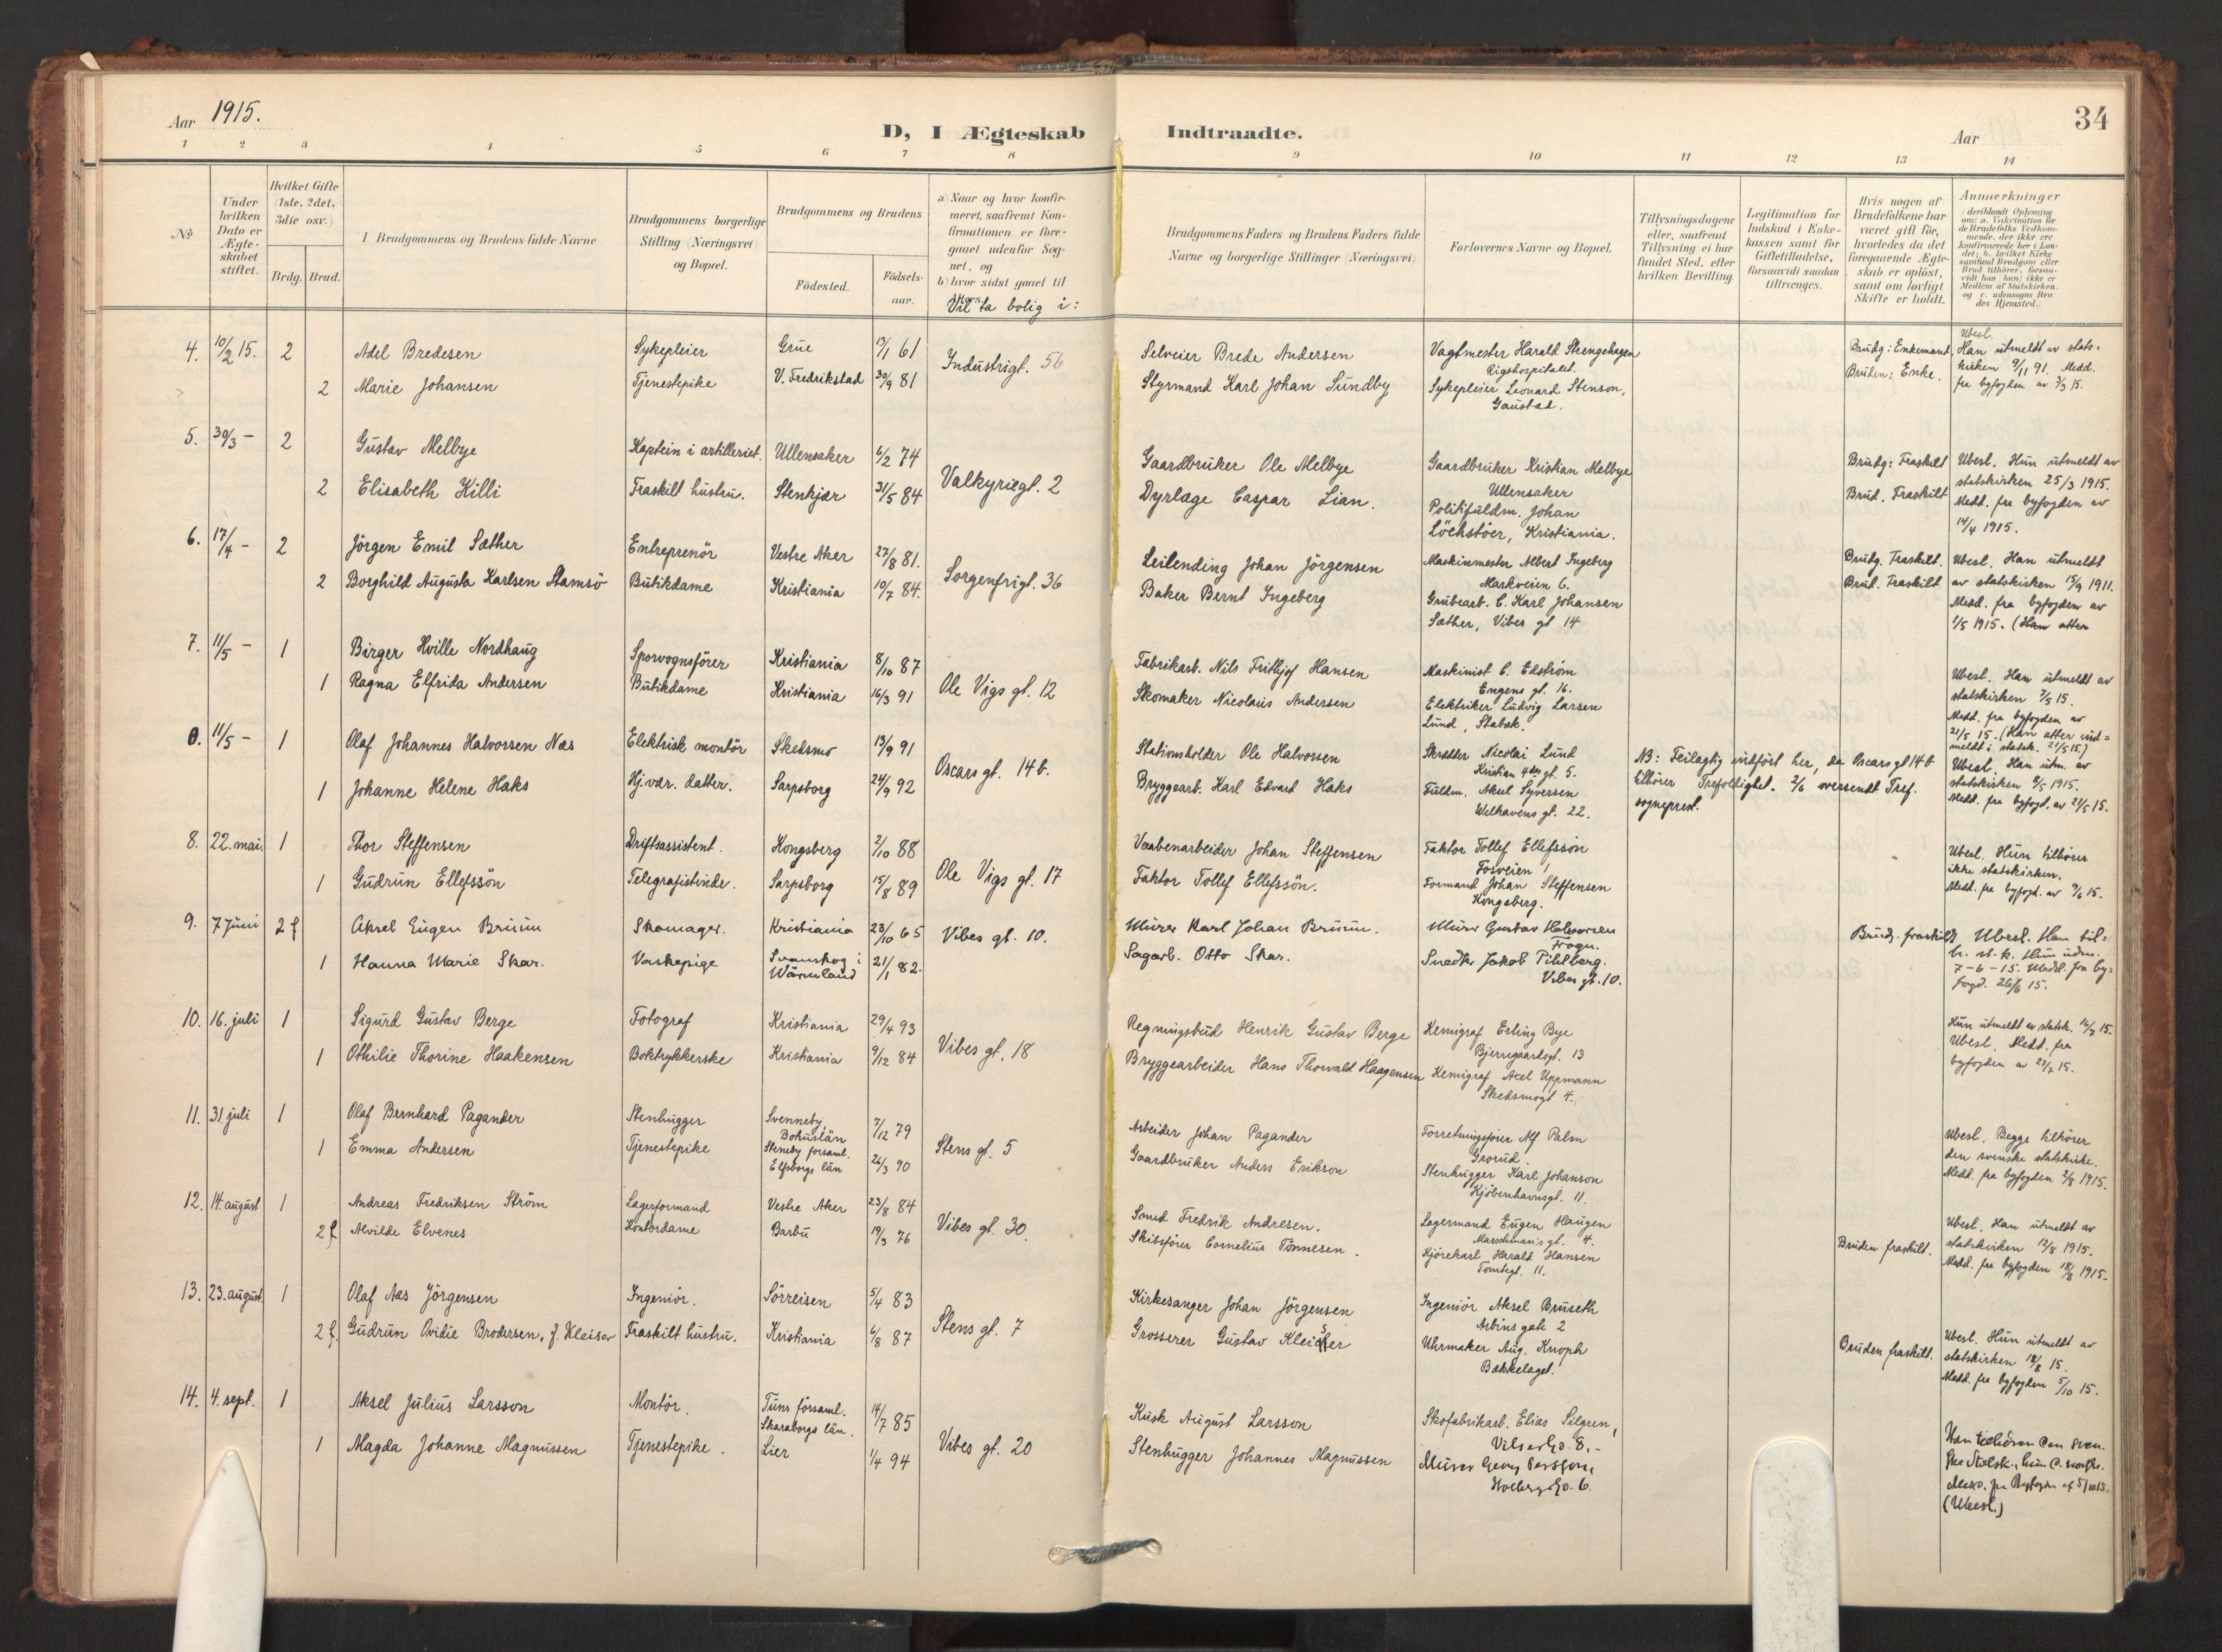 Aar 1915.
D, I Ægteskab Indtraadte.
Aar
34
1 2 3 4 5 6 7 8 9 10 11 12 13 14
№
Under hvilken Dato er Ægteskabet stiftet.
Hvilket Gifte (1ste, 2det, 3die osv.)
Brdg. Brud.
Brudgommens og Brudens fulde Navne
Brudgommens borgerlige Stilling (Næringsvei) og Bopæl.
Brudgommens og Brudens
Födested. Födselsaar.
a) Naar og hvor konfirmeret, saafremt Konfirmationen er foregaaet udenfor Sognet, og
b) hvor sidst gaaet til Alters.
Vil ta bolig i:
Brudgommens Faders og Brudens Faders fulde Navne og borgerlige Stillinger (Næringsvei)
Forlovernes Navne og Bopæl.
Tillysningsdagene eller, saafremt Tillysning ei har fundet Sted, efter hvilken Bevilling.
Legitimation for Indskud i Enkekassen samt for Giftetilladelse, forsaavidt saadan tiltrænges.
Hvis nogen af Brudefolkene har været gift för, hvorledes da det foregaaende Ægteskab er oplöst, samt om lovligt Skifte er holdt.
Anmærkninger
(deriblandt Oplysning om: a. Vakcination for de Brudefolks Vedkommende, der ikke ere konfirmerede her i Landet; b. hvilket Kirkesamfund Brudgom eller Brud tilhörer, forsaavidt han (hun) ikke er Medlem af Statskirken, og c. udensogns Brudes Hjemsted.)
4. 10/2 15. 2 Adel Bredesen Sykepleier Grue 13/1 61 Industrigt. 56 Selveier Brede Andersen Vagtmester Harald Strengehagen Rigshospitalet. Brudg: Enkemand Ubesl. Han utmeldt av stats=
2 Marie Johansen Tjenestepike V. Fredrikstad 30/9 81 Styrmand Karl Johan Sundby Sykepleier Leonard Stenson, Gaustad. Bruden: Enke. kirken 9/11 91. Medd. fra byfogden av 3/3 15.
5. 30/3 – 2 Gustav Melbye Kaptein i artilleriet. Ullensaker 6/2 74 Valkyriegt. 2 Gaardbruker Ole Melbye Gaardbruker Kristian Melbye Ullensaker Brudg: Fraskilt Ubesl. Hun utmeldt av
2 Elisabeth Killi Fraskilt hustru. Stenkjær 31/5 84 Dyrlæge Caspar Lian. Politifuldm. Johan Löchstöer, Kristiania. Brud. Fraskilt statskirken 25/3 1915. Medd. fra byfogden av 14/4 1915.
6. 17/4 – 2 Jörgen Emil Sæther Entreprenör Vestre Aker 27/8 81. Sorgenfrigt. 36 Leilending Johan Jörgensen Maskinmester Albert Ingeberg Markveien 6. Brudg. Fraskilt. Ubesl. Han utmeldt
2 Borghild Augusta Karlsen Stamsö Butikdame Kristiania 10/7 84. Baker Bernt Ingeberg Grubearb. C. Karl Johansen Sæther, Vibes gt 14 Brud. Fraskilt av statskirken 15/9 1911. Medd. fra byfogden av 1/5 1915. (Han atter
7. 11/5 – 1 Birger Hville Nordhaug Sporvognsförer Kristiania 8/10 87 Ole Vigs gt. 12 Fabrikarb. Nils Frithjof Hansen Maskinist C. Edström Engens gt. 16. Ubesl. Han utmeldt av statskirken 7/5 15.
1 Ragna Elfrida Andersen Butikdame Kristiania 16/3 91 Skomaker Nicolaus Andersen Elektriker Ludvig Larsen Lund, Stabæk. Medd. fra byfogden av 21/5 15. (Han atter ind=meldt i statsk. 21/5 15.)
0. 11/5 – 1 Olaf Johannes Halvorsen Næs Elektrisk montör Skedsmo 13/9 91 Oscars gt. 14 b. Stationsholder Ole Halvorsen Skrædder Nicolai Lund Kristian 4des gt. 5. NB: Feilagtig indfört her, da Oscars gt 14 b Ubesl. Han utm. av
1 Johanne Helene Haks Hj.vær. datter. Sarpsborg 24/9 92 Bryggearb. Karl Edvard Haks Fuldm. Aksel Syversen Welhavens gt. 22. tilhörer Trefoldighet. 2/6 oversendt Tref. sogneprest. statskirken 8/5 1915. Medd. fra byfogd. av 21/5 15.
8. 22. mai. 1 Thor Steffensen Driftsassistent. Kongsberg 2/10 88 Ole Vigs gt. 17 Vaabenarbeider Johan Steffensen Faktor Tollef Ellefssön Fosveien 1 Ubesl. Hun tilhörer
1 Gudrun Ellefssön Telegrafistinde. Sarpsborg 15/8 89 Faktor Tollef Ellefssön. Formand Johan Steffensen Kongsberg. ikke statskirken. Medd. fra byfogd. av 9/6 15.
9. 7 Juni 2 f Aksel Eugen Bruun Skomager. Kristiania 23/10 65 Vibes gt. 10. Murer Karl Johan Bruun. Murer Gustav Halvorsen Frogn. Brudg. fraskilt Ubesl. Han til=
1 Hanna Marie Skar. Vaskepige Svanskog i Wärmland 21/1 82 Sagarb. Otto Skar. Snedker Jakob Pihlberg. Vibes gt. 10. h. st.k. Hun udm. 7-6-15. Medd. fra by=fogd. 26/6 15.
10. 16. juli 1 Sigurd Gustav Berge Fotograf Kristiania 29/4 93 Vibes gt. 18 Regningsbud Henrik Gustav Berge Kemigraf Erling Bye Bjerregaardsgt. 13 Hun utmeldt av statsk. 14/7 15.
1 Othilie Thorine Haakensen Boktrykkerske Kristiania 9/12 84 Bryggearbeider Hans Thorvald Haagensen Kemigraf Axel Uppmann Skedsmogt 4. Ubesl. Medd. fra byfogden av 22/7 15.
11. 31 juli 1 Olaf Bernhard Pagander Stenhugger Svenneby Bohuslän 7/12 79 Stens gt. 5 Arbeider Johan Pagander Forretningsförer Alf Palm Grorud. Ubesl. Begge tilhörer
1 Emma Andersen Tjenestepike Steneby forsaml. Elfsborgs län 26/3 90 Gaardbruker Anders Erikson Stenhugger Karl Johanson Kjöbenhavnsgt. 11. den svenske statskirke. Medd. fra byfogden 2/8 1915.
12. 14. august 1 Andreas Fredriksen Ström Lagerformand Vestre Aker 23/8 84 Vibes gt. 30. Smed Fredrik Andresen. Lagermand Eugen Haugen Marschmans gt. 4. Ubesl. Han utmeldt av
2 f Alvilde Elvenes Kontordame Barbu 19/3 76 Skibsförer Cornelius Tönnesen. Kjörekarl Harald Hansen Tomtegt. 11. Bruden fraskilt. statskirken 12/8 1915. Medd. fra byfogden 18/8 1915.
13. 23. august. 1 Olaf Aas Jörgensen Ingeniör. Sörreisen 5/4 83 Stens gt. 7 Kirkesanger Johan Jörgensen Ingeniör Aksel Bruseth Arbins gate 2
2 f. Gudrun Ovidie Brodersen, f. Kleiser Fraskilt hustru. Kristiania 6/8 87 Grosserer Gustav Kleiser Uhrmaker Aug. Knoph Bækkelaget. Bruden fraskilt. Ubesl. Hun utmeldt av statskirken 18/8 15. Medd. fra byfogden 5/10 15.
14. 4. sept. 1 Aksel Julius Larsson Montör. Tuns församl. Skaraborgs län. 14/7 85 Vibes gt. 20 Kusk August Larsson Skofabrikarb. Elias Silgren,
1 Magda Johanne Magnussen Tjenestepike. Lier 1/4 94 Stenhugger Johannes Magnussen Murer Georg Persson, Han tilhörer den sven.ske Statsk., hun d. norske. Medd. fra Byfogden af 5/10 15. (Ubesl.)